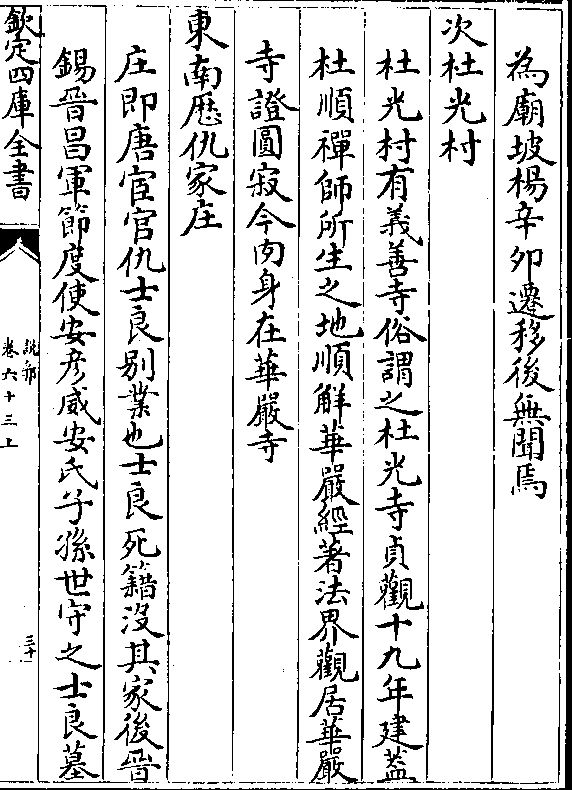 為廟坡楊辛卯遷移後無聞焉
次杜光村
杜光村有義善寺俗謂之杜光寺貞觀十九年建葢
杜順禪師所生之地順解華嚴經著法界觀居華嚴
寺證圓寂今肉身在華嚴寺
東南歴仇家庄
庄即唐宦官仇士良别業也士良死籍沒其家後晉
錫晉昌軍節度使安彦威安氏子孫世守之士良墓
欽定四庫全書
說郛
卷六十三上
三十